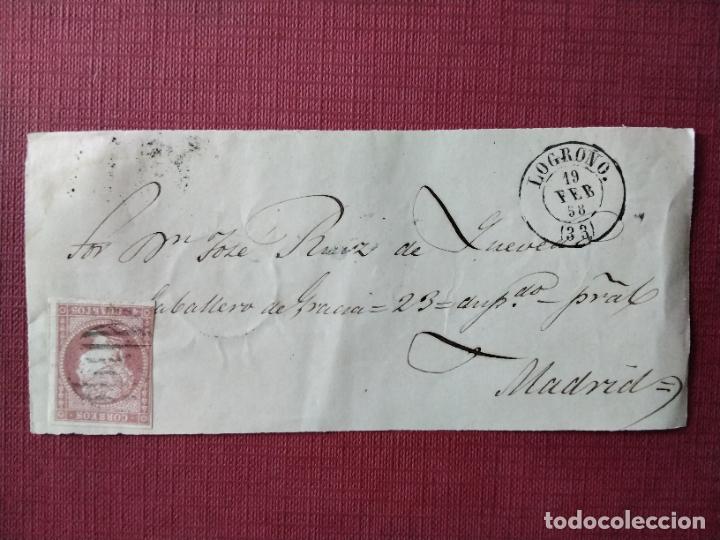 LOGROÑO.
19
FEB
58
(33)
Sor Dn José Ruiz de Quevedo
Caballero de Gracia = 23 = dupdo pral
Madrid =
4 CUARTOS
CORREOS
todocoleccion
todocoleccion.net